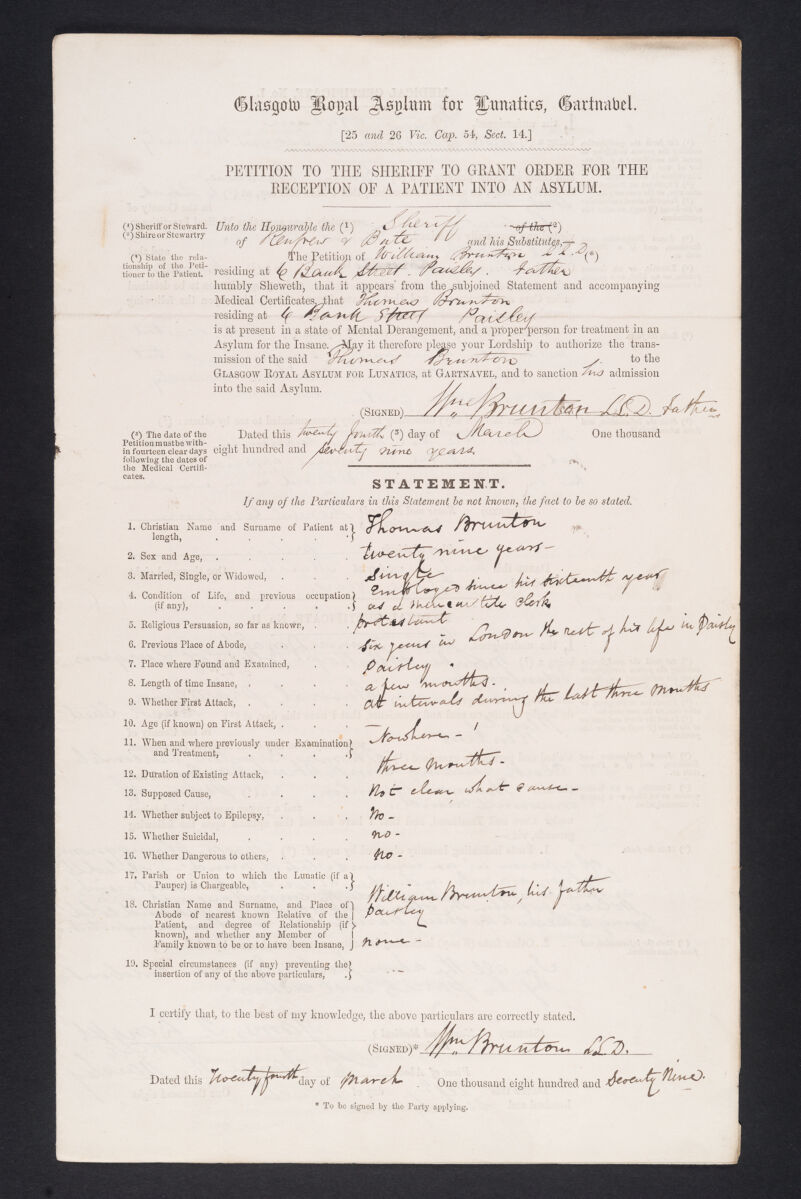 Glasgow Royal Asylum for Lunatics, Gartnavel.
[25 and 26 Vic. Cap. 54, Sect. 14.]
PETITION TO THE SHERIFF TO GRANT ORDER FOR THE
RECEPTION OF A PATIENT INTO AN ASYLUM.
(¹) Sheriff or Steward.
(²) Shire or Stewartry
Unto the Honourable the (¹) Sheriff of the (²)
of Renfrew & Bute and his Substitutes,
(⁴) State the rela-
tionship of the Peti-
tioner to the Patient.
The Petition of William Brunton LL.D (⁴)
residing at 6 Bank Street. Paisley. Father
humbly Sheweth, that it appears from the subjoined Statement and accompanying
Medical Certificates, that Thomas Brunton
residing at 6 Bank Street Paisley
is at present in a state of Mental Derangement, and a proper person for treatment in an
Asylum for the Insane. May it therefore please your Lordship to authorize the trans-
mission of the said Thomas Brunton to the
GLASGOW ROYAL ASYLUM FOR LUNATICS, AT GARTNAVEL, and to sanction his admission
into the said Asylum.
(SIGNED) Wm Brunton LL.D. Father
(³) The date of the
Petition must be with-
in fourteen clear days
following the dates of
the Medical Certifi-
cates.
Dated this twenty fourth (³) day of March One thousand
eight hundred and seventy nine years.
STATEMENT.
If any of the Particulars in this Statement be not known, the fact to be so stated.
1. Christian Name and Surname of Patient at
length, Thomas Brunton
2. Sex and Age, twenty nine years-
3. Married, Single, or Widowed, Single
4. Condition of Life, and previous occupation
(if any), Employed since his sixteenth year
as a mercantile clerk
5. Religious Persuasion, so far as known, protestant
6. Previous Place of Abode, six years in London the rest of his life in Paisley
7. Place where Found and Examined, Paisley.
8. Length of time Insane, a few months.
9. Whether First Attack, at intervals during the last three months
10. Age (if known) on First Attack, -
11. When and where previously under Examination
and Treatment, Nowhere -
12. Duration of Existing Attack, three months-
13. Supposed Cause, Not clear what cause-
14. Whether subject to Epilepsy, No-
15. Whether Suicidal, no-
16. Whether Dangerous to others, No-
17. Parish or Union to which the Lunatic (if a
Pauper) is Chargeable,
18. Christian Name and Surname, and Place of
Abode of nearest known Relative of the
Patient, and degree of Relationship (if
known), and whether any Member of
Family known to be or to have been Insane,
William Brunton, his father
Paisley
none-
19. Special circumstances (if any) preventing the
insertion of any of the above particulars,
I certify that, to the best of my knowledge, the above particulars are correctly stated.
(SIGNED)* Wm Brunton LL.D.
Dated this Twenty fourth day of March. One thousand eight hundred and Seventy Nine.
* To be signed by the Party applying.